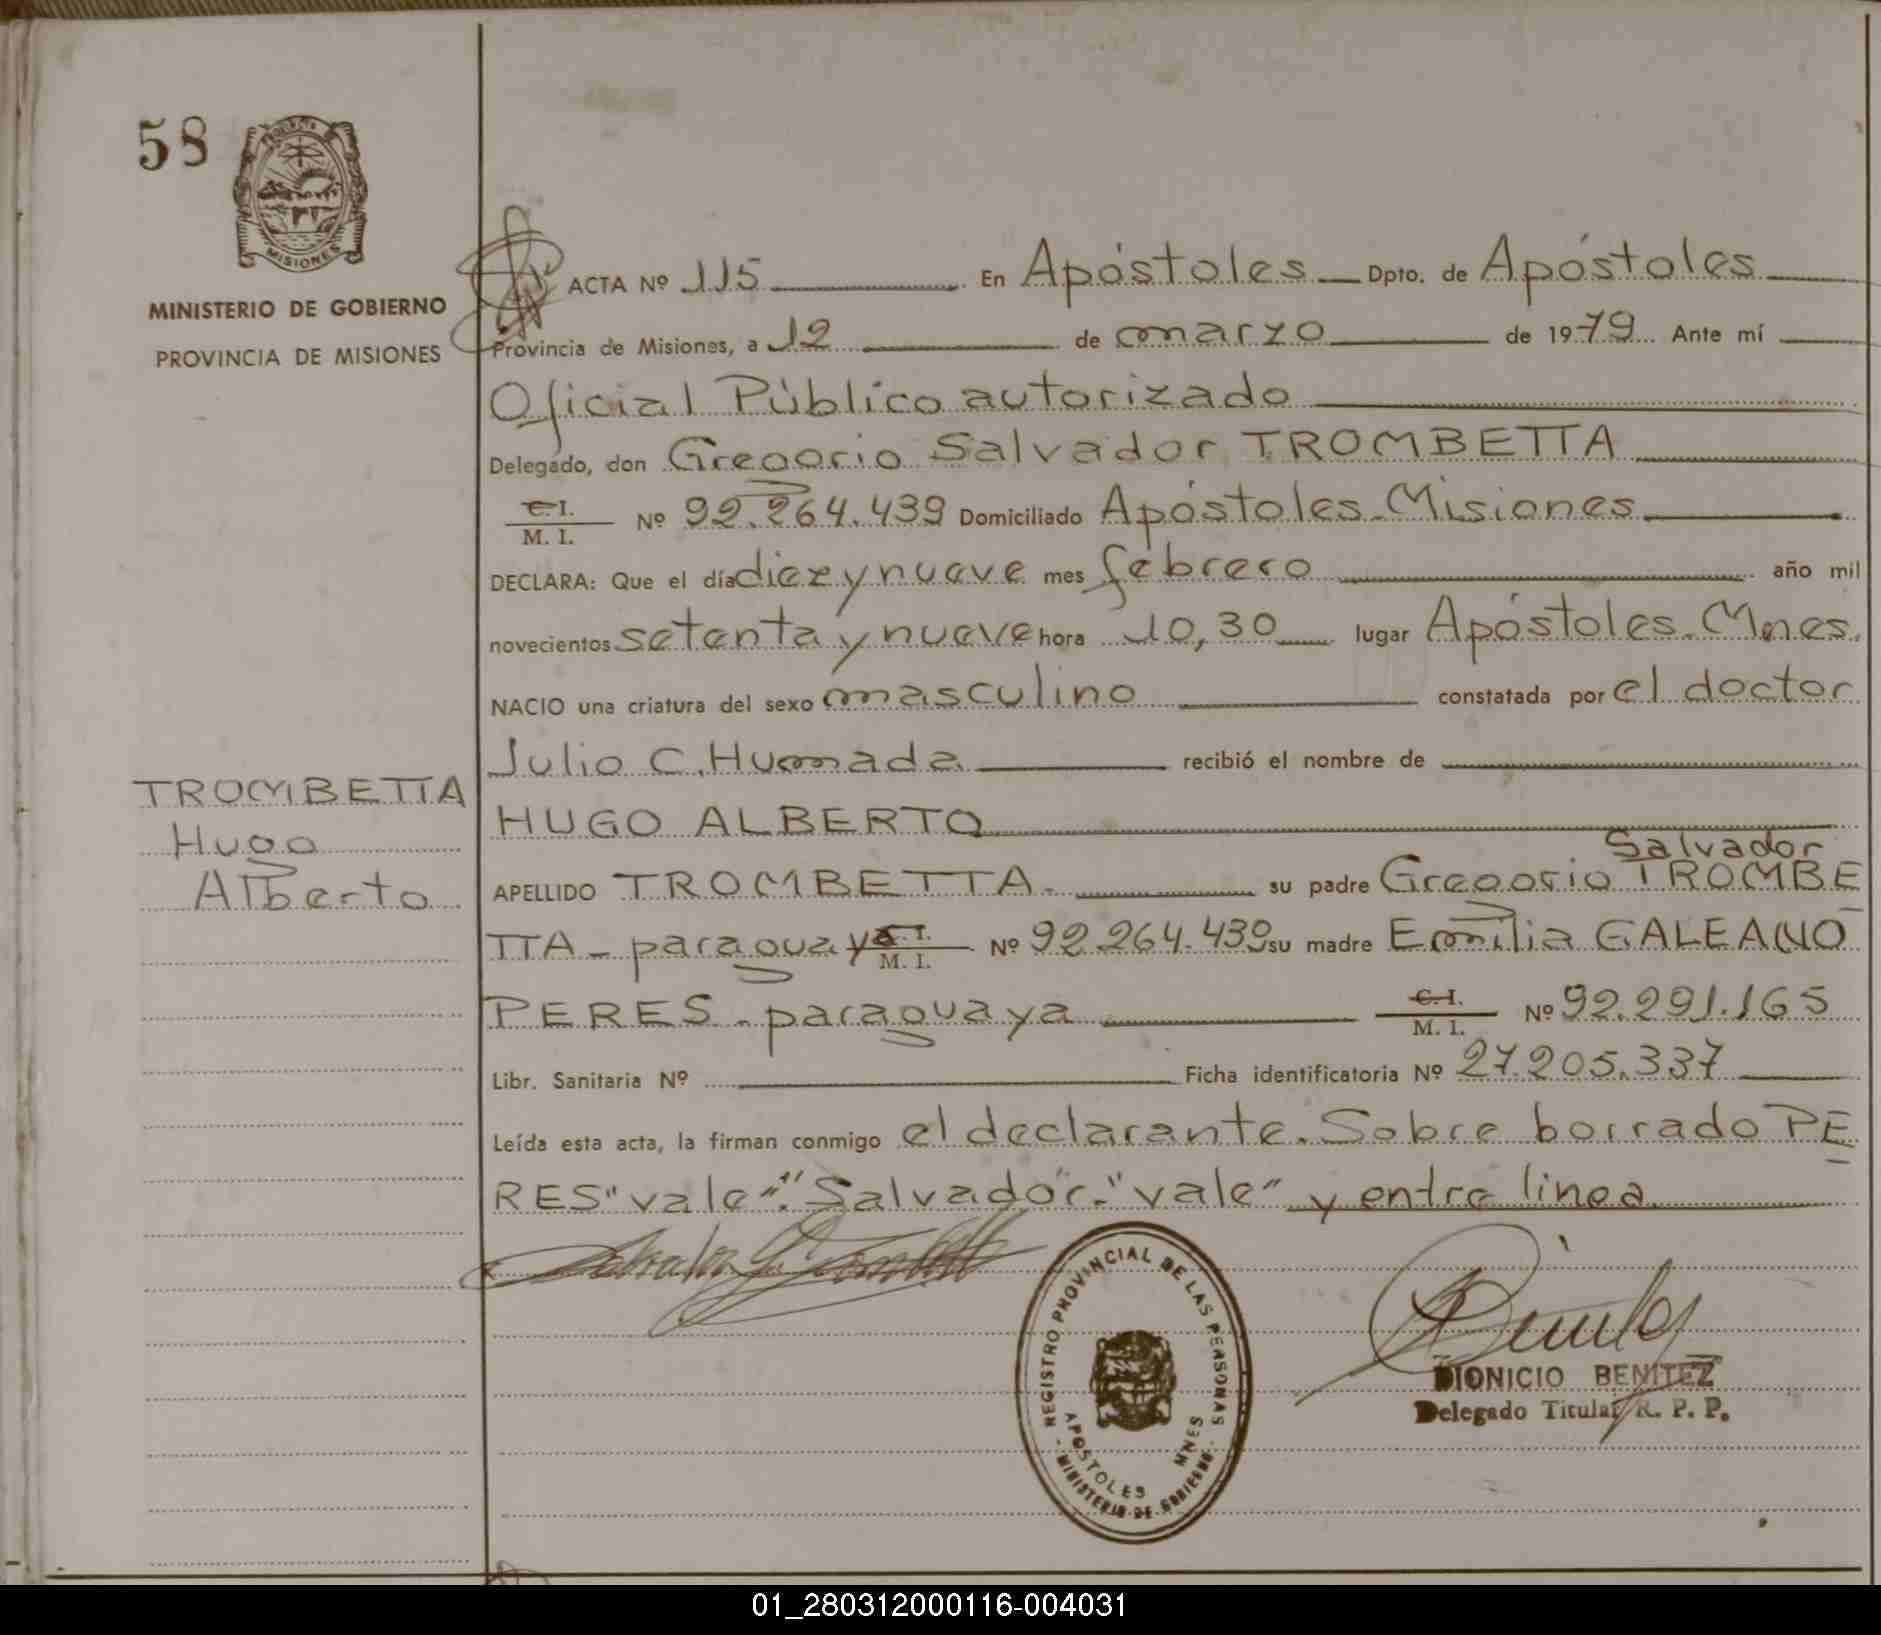 58
PROVINCIA DE
MISIONES
MINISTERIO DE GOBIERNO
PROVINCIA DE MISIONES
ACTA Nº 115 En Apóstoles Dpto. de Apóstoles
Provincia de Misiones, a 12 de marzo de 1979 Ante mí
Oficial Público autorizado
Delegado, don Gregorio Salvador TROMBETTA
C. I. / M. I. Nº 92.264.439 Domiciliado Apóstoles-Misiones
DECLARA: Que el día diez y nueve mes febrero año mil
novecientos setenta y nueve hora 10,30 lugar Apóstoles. Mnes.
NACIO una criatura del sexo masculino constatada por el doctor
Julio C. Humada recibió el nombre de
TROMBETTA
Hugo
Alberto
HUGO ALBERTO
Salvador
APELLIDO TROMBETTA. su padre Gregorio TROMBE
TTA - paraguayo C. I. / M. I. Nº 92.264.439 su madre Emilia GALEANO
PERES - paraguaya C. I. / M. I. Nº 92.291.165
Libr. Sanitaria Nº Ficha identificatoria Nº 27.205.337
Leída esta acta, la firman conmigo el declarante. Sobre borrado PE
RES "vale" "Salvador" "vale" y entre linea
REGISTRO PROVINCIAL DE LAS PERSONAS
APOSTOLES MNES
MINISTERIO DE GOBIERNO
DIONICIO BENITEZ
Delegado Titular R. P. P.
01_280312000116-004031